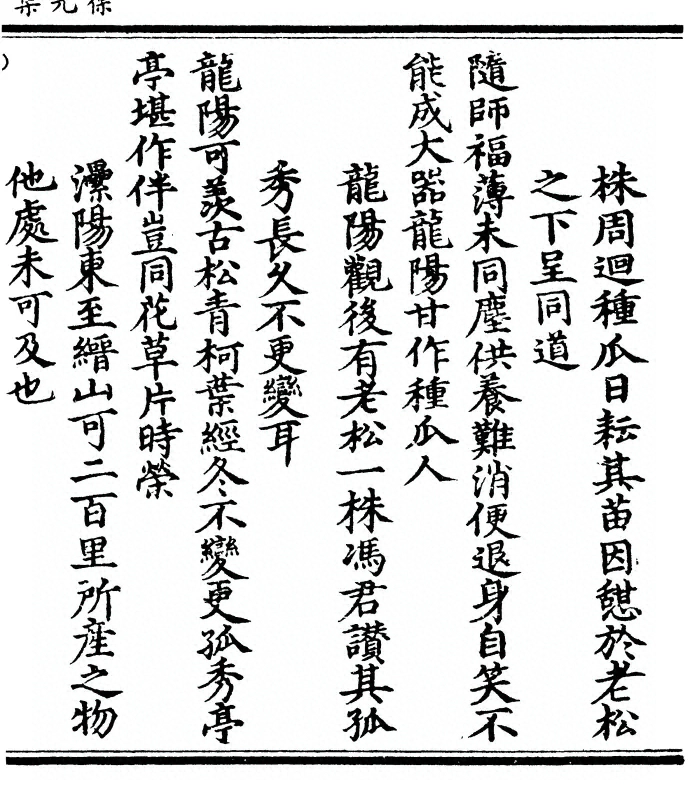 株周迴種瓜日耘其苗因憇於老松
之下呈同道
隨師福薄未同塵供養難消便退身自笑不
能成大器龍陽甘作種瓜人
龍陽觀後有老松一株馮君讃其孤
秀長久不更變耳
龍陽可羨古松青柯葉經冬不變更孤秀亭
亭堪作伴豈同花草片時榮
灅陽東至繒山可二百里所産之物
他處未可及也